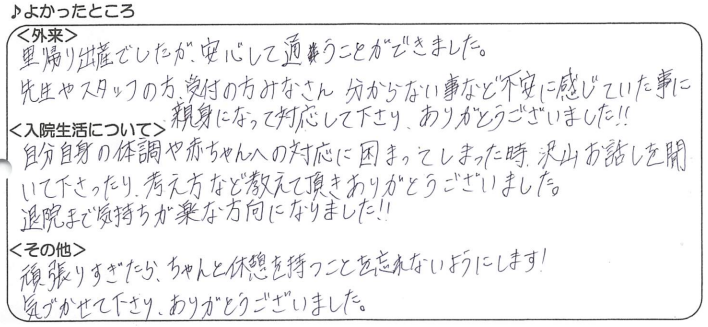 ♪よかったところ
<外来>
里帰り出産でしたが、安心して通うことができました。
先生やスタッフの方、受付の方みなさん 分からない事など不安に感じていた事に
親身になって対応して下さり、ありがとうございました!!
<入院生活について>
自分自身の体調や赤ちゃんへの対応に困まってしまった時、沢山お話しを聞
いて下さったり、考え方など教えて頂きありがとうございました。
退院まで気持ちが楽な方向になりました!!
<その他>
頑張りすぎたら、ちゃんと休憩を持つことを忘れないようにします!
気づかせて下さり、ありがとうございました。